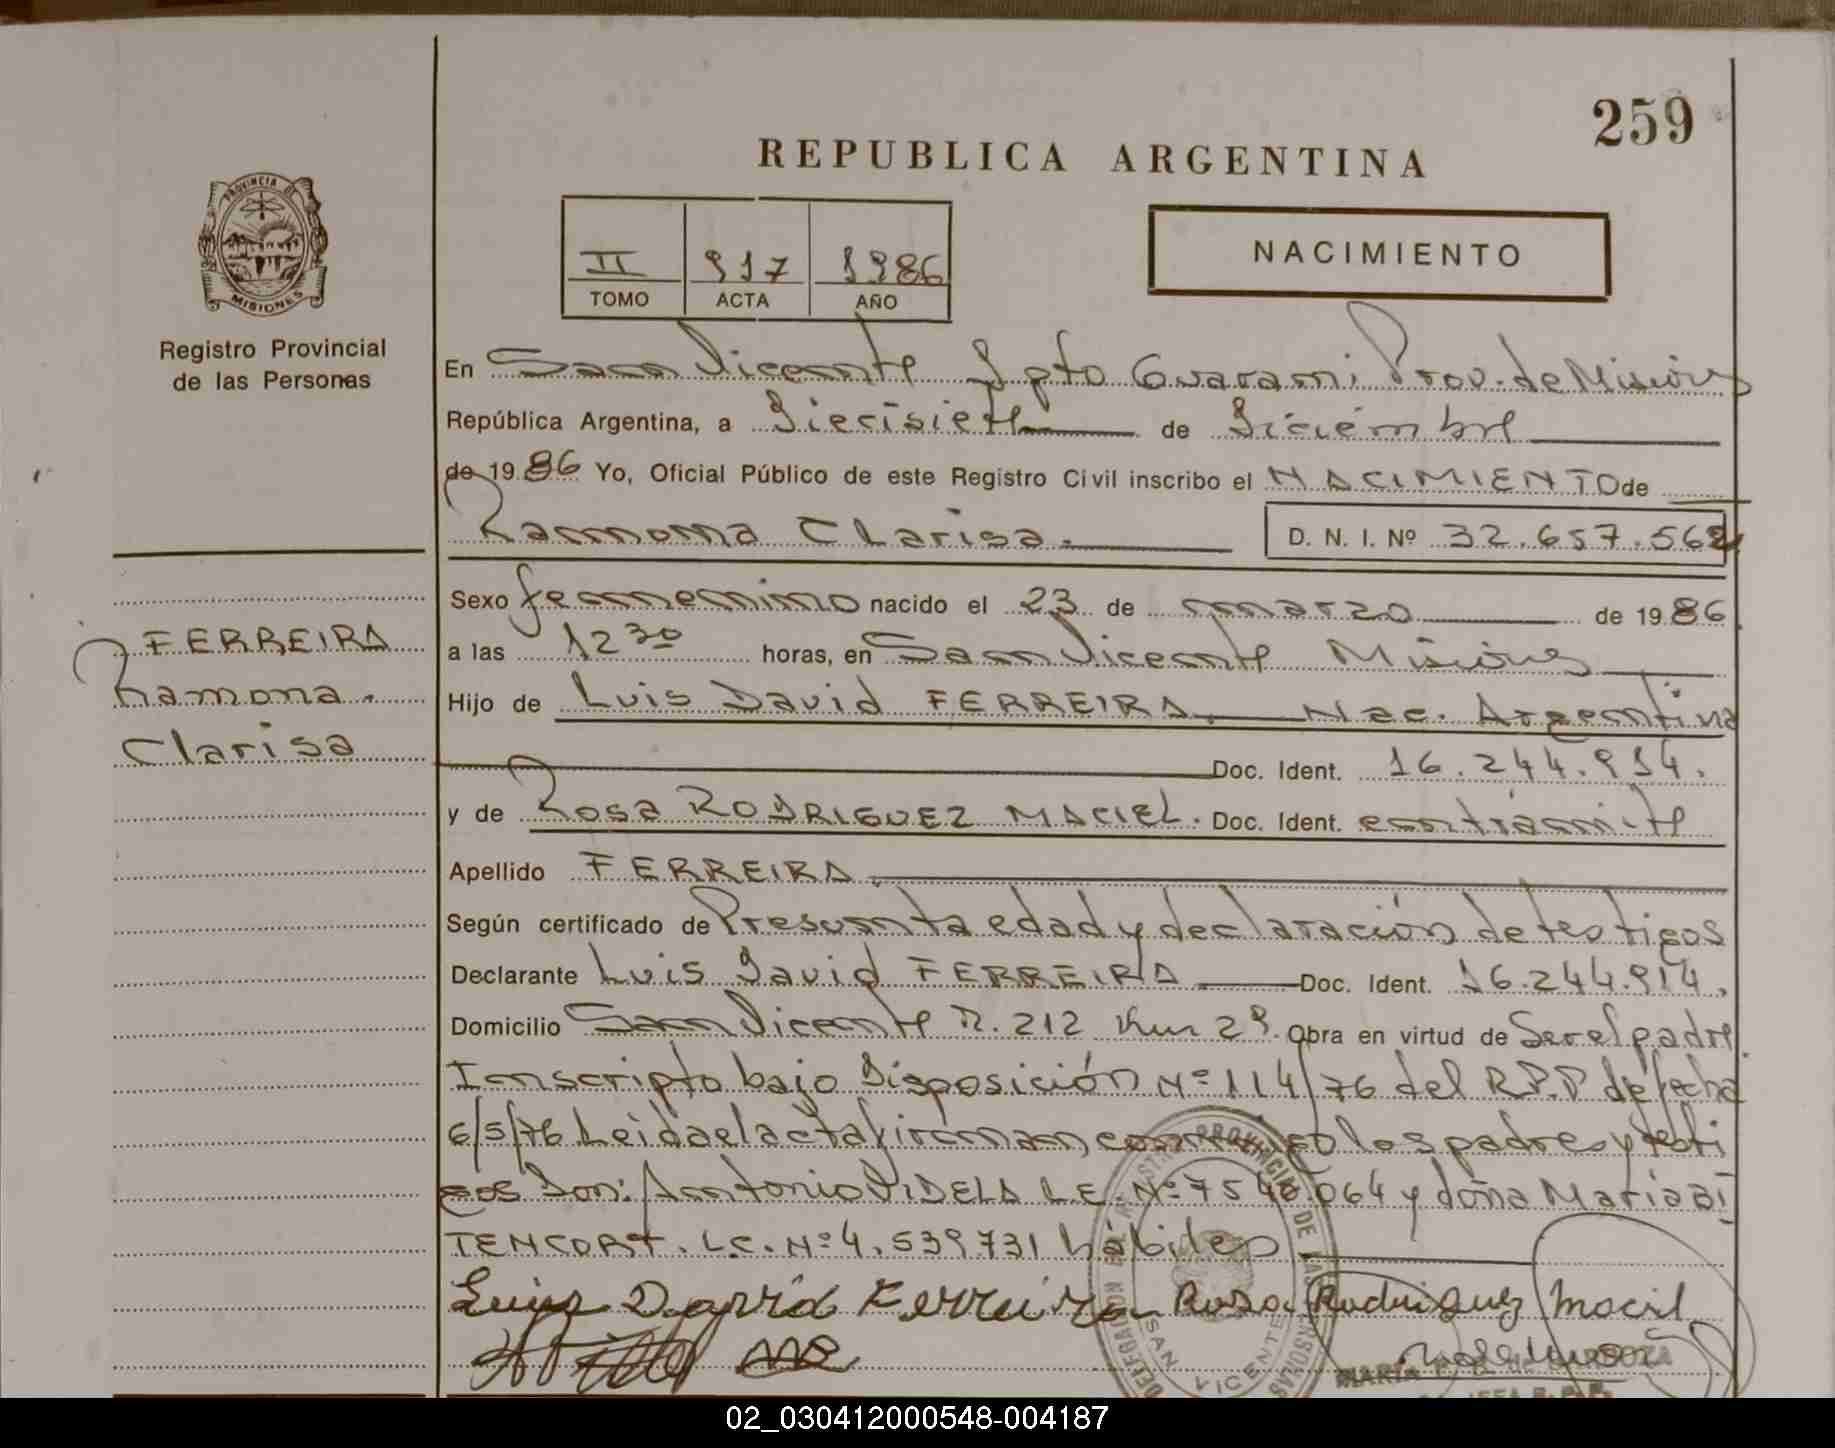 259
REPUBLICA ARGENTINA
PROVINCIA DE
MISIONES
II 917 1986
TOMO ACTA AÑO
NACIMIENTO
Registro Provincial
de las Personas
En San Vicente Dpto Guarani Prov. de Misiones
República Argentina, a Diecisiete de Diciembre
de 1986 Yo, Oficial Público de este Registro Civil inscribo el NACIMIENTO de
Ramona Clarisa. D. N. I. Nº 32.657.562
FERREIRA
Ramona.
Clarisa
Sexo femenino nacido el 23 de marzo de 1986
a las 12 30 horas, en San Vicente Misiones
Hijo de Luis David FERREIRA. Nac. Argentina
Doc. Ident. 16.244.914.
y de Rosa RODRIGUEZ MACIEL. Doc. Ident. en trámite
Apellido FERREIRA.
Según certificado de Presunta edad y declaración de testigos
Declarante Luis David FERREIRA Doc. Ident. 16.244.914.
Domicilio San Vicente R. 212 Km 29. Obra en virtud de Ser el padre.
Inscripto bajo Disposición Nº 114/76 del R.P.P de fecha
6/5/76 Leida el acta firman conmigo los padres y testi
gos Don: Antonio VIDELA L.E. Nº 7540.064 y doña Maria BI
TENCORT. L.C. Nº 4.539731 hábiles
Luis David Ferreira Rosa Rodriguez Maciel
SAN VICENTE
02_030412000548-004187